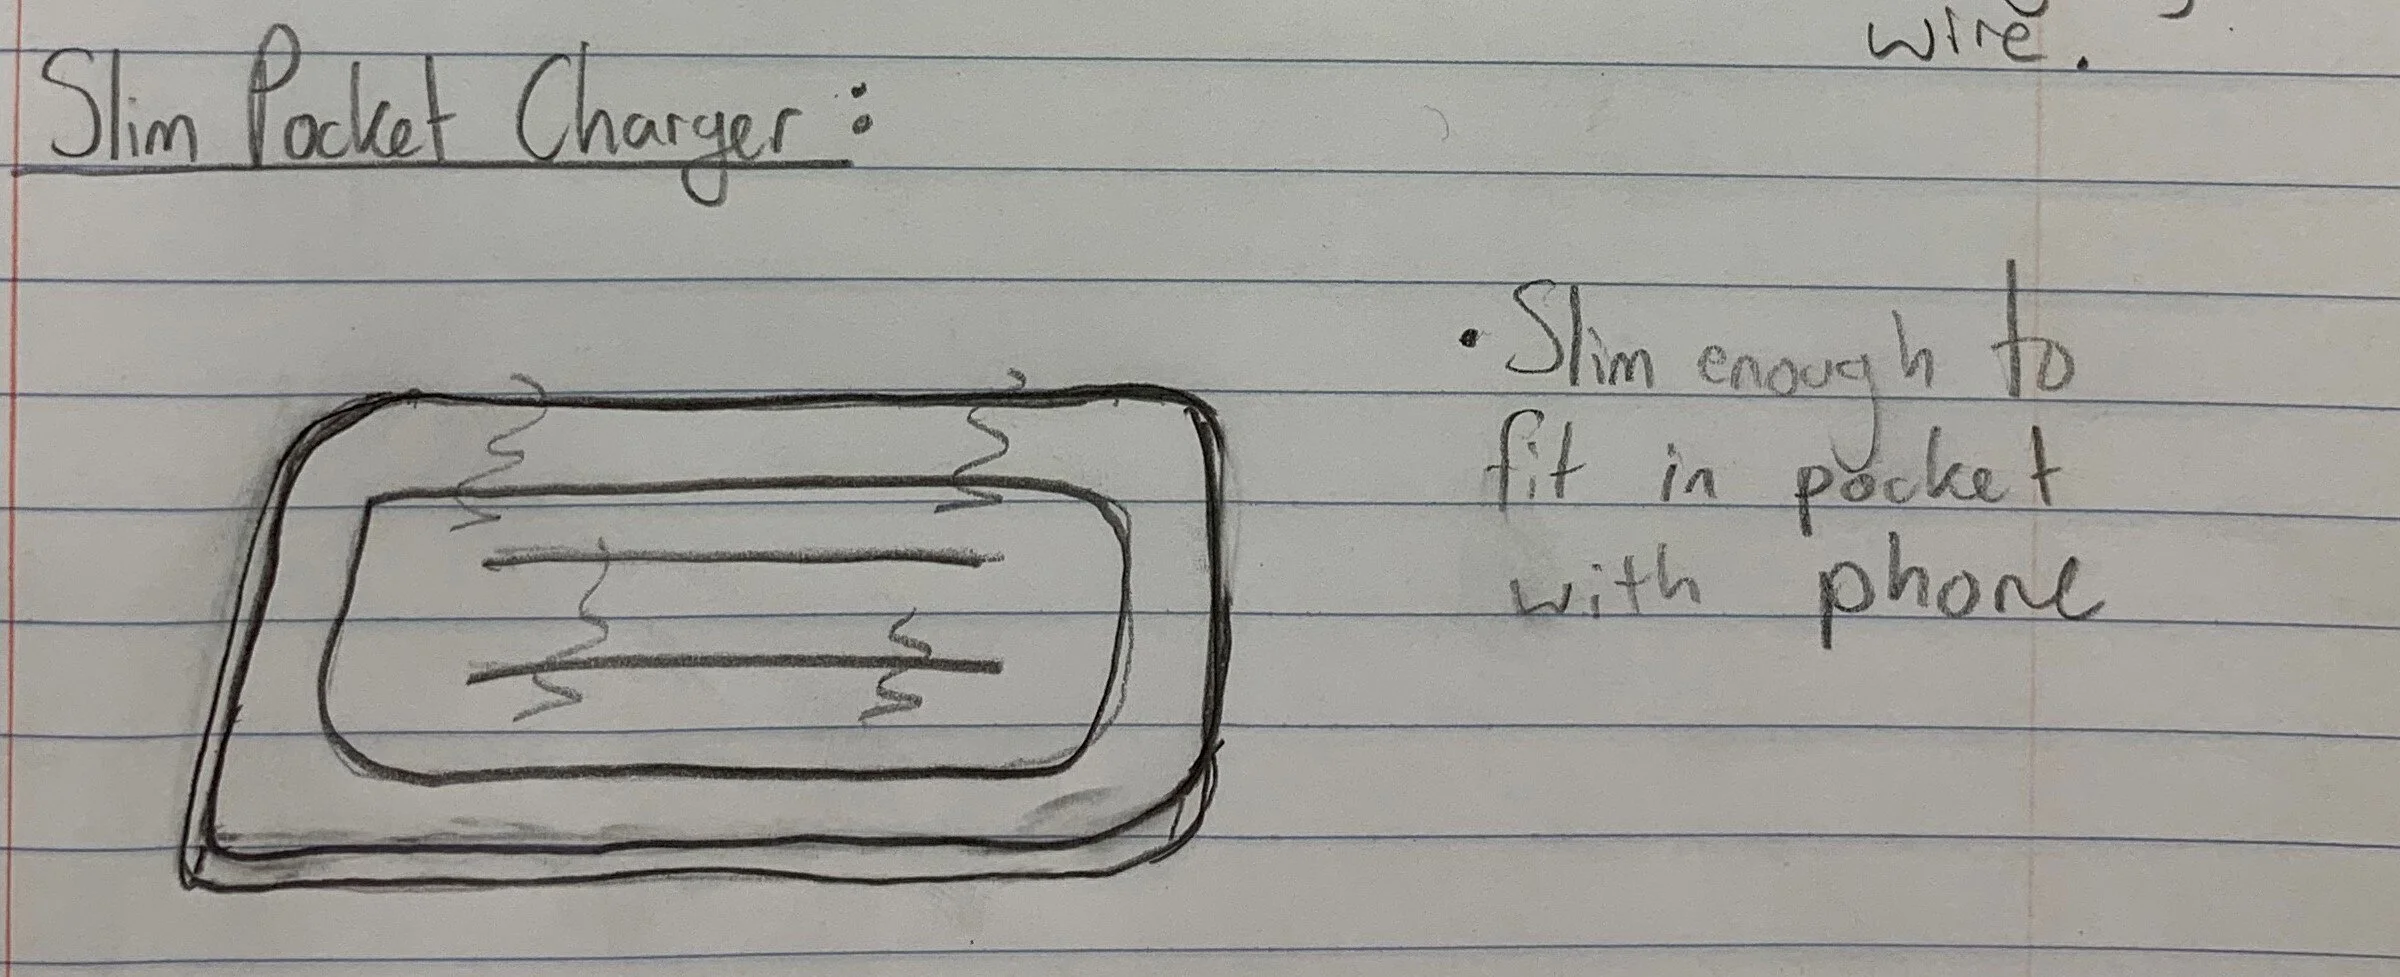 wire.
Slim Pocket Charger:
• Slim enough to
fit in pocket
with phone